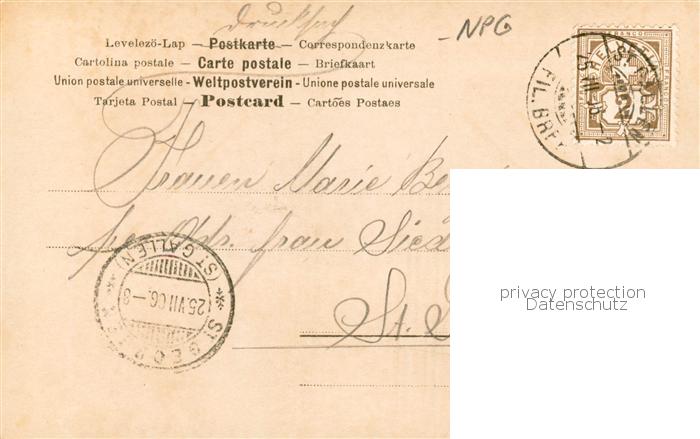 Drucksach
NPG
Levelező-Lap — Postkarte — Correspondenzkarte
Cartolina postale — Carte postale — Briefkaart
Union postale universelle - Weltpostverein - Unione postale universale
Tarjeta Postal — Postcard — Cartões Postaes
FRANCO
2
FIL. BRÜ
Frauen Marie Be
per Adr. frau
St.
ST GEORGEN
(ST GALLEN)
25.VII.06.-8
privacy protection
Datenschutz